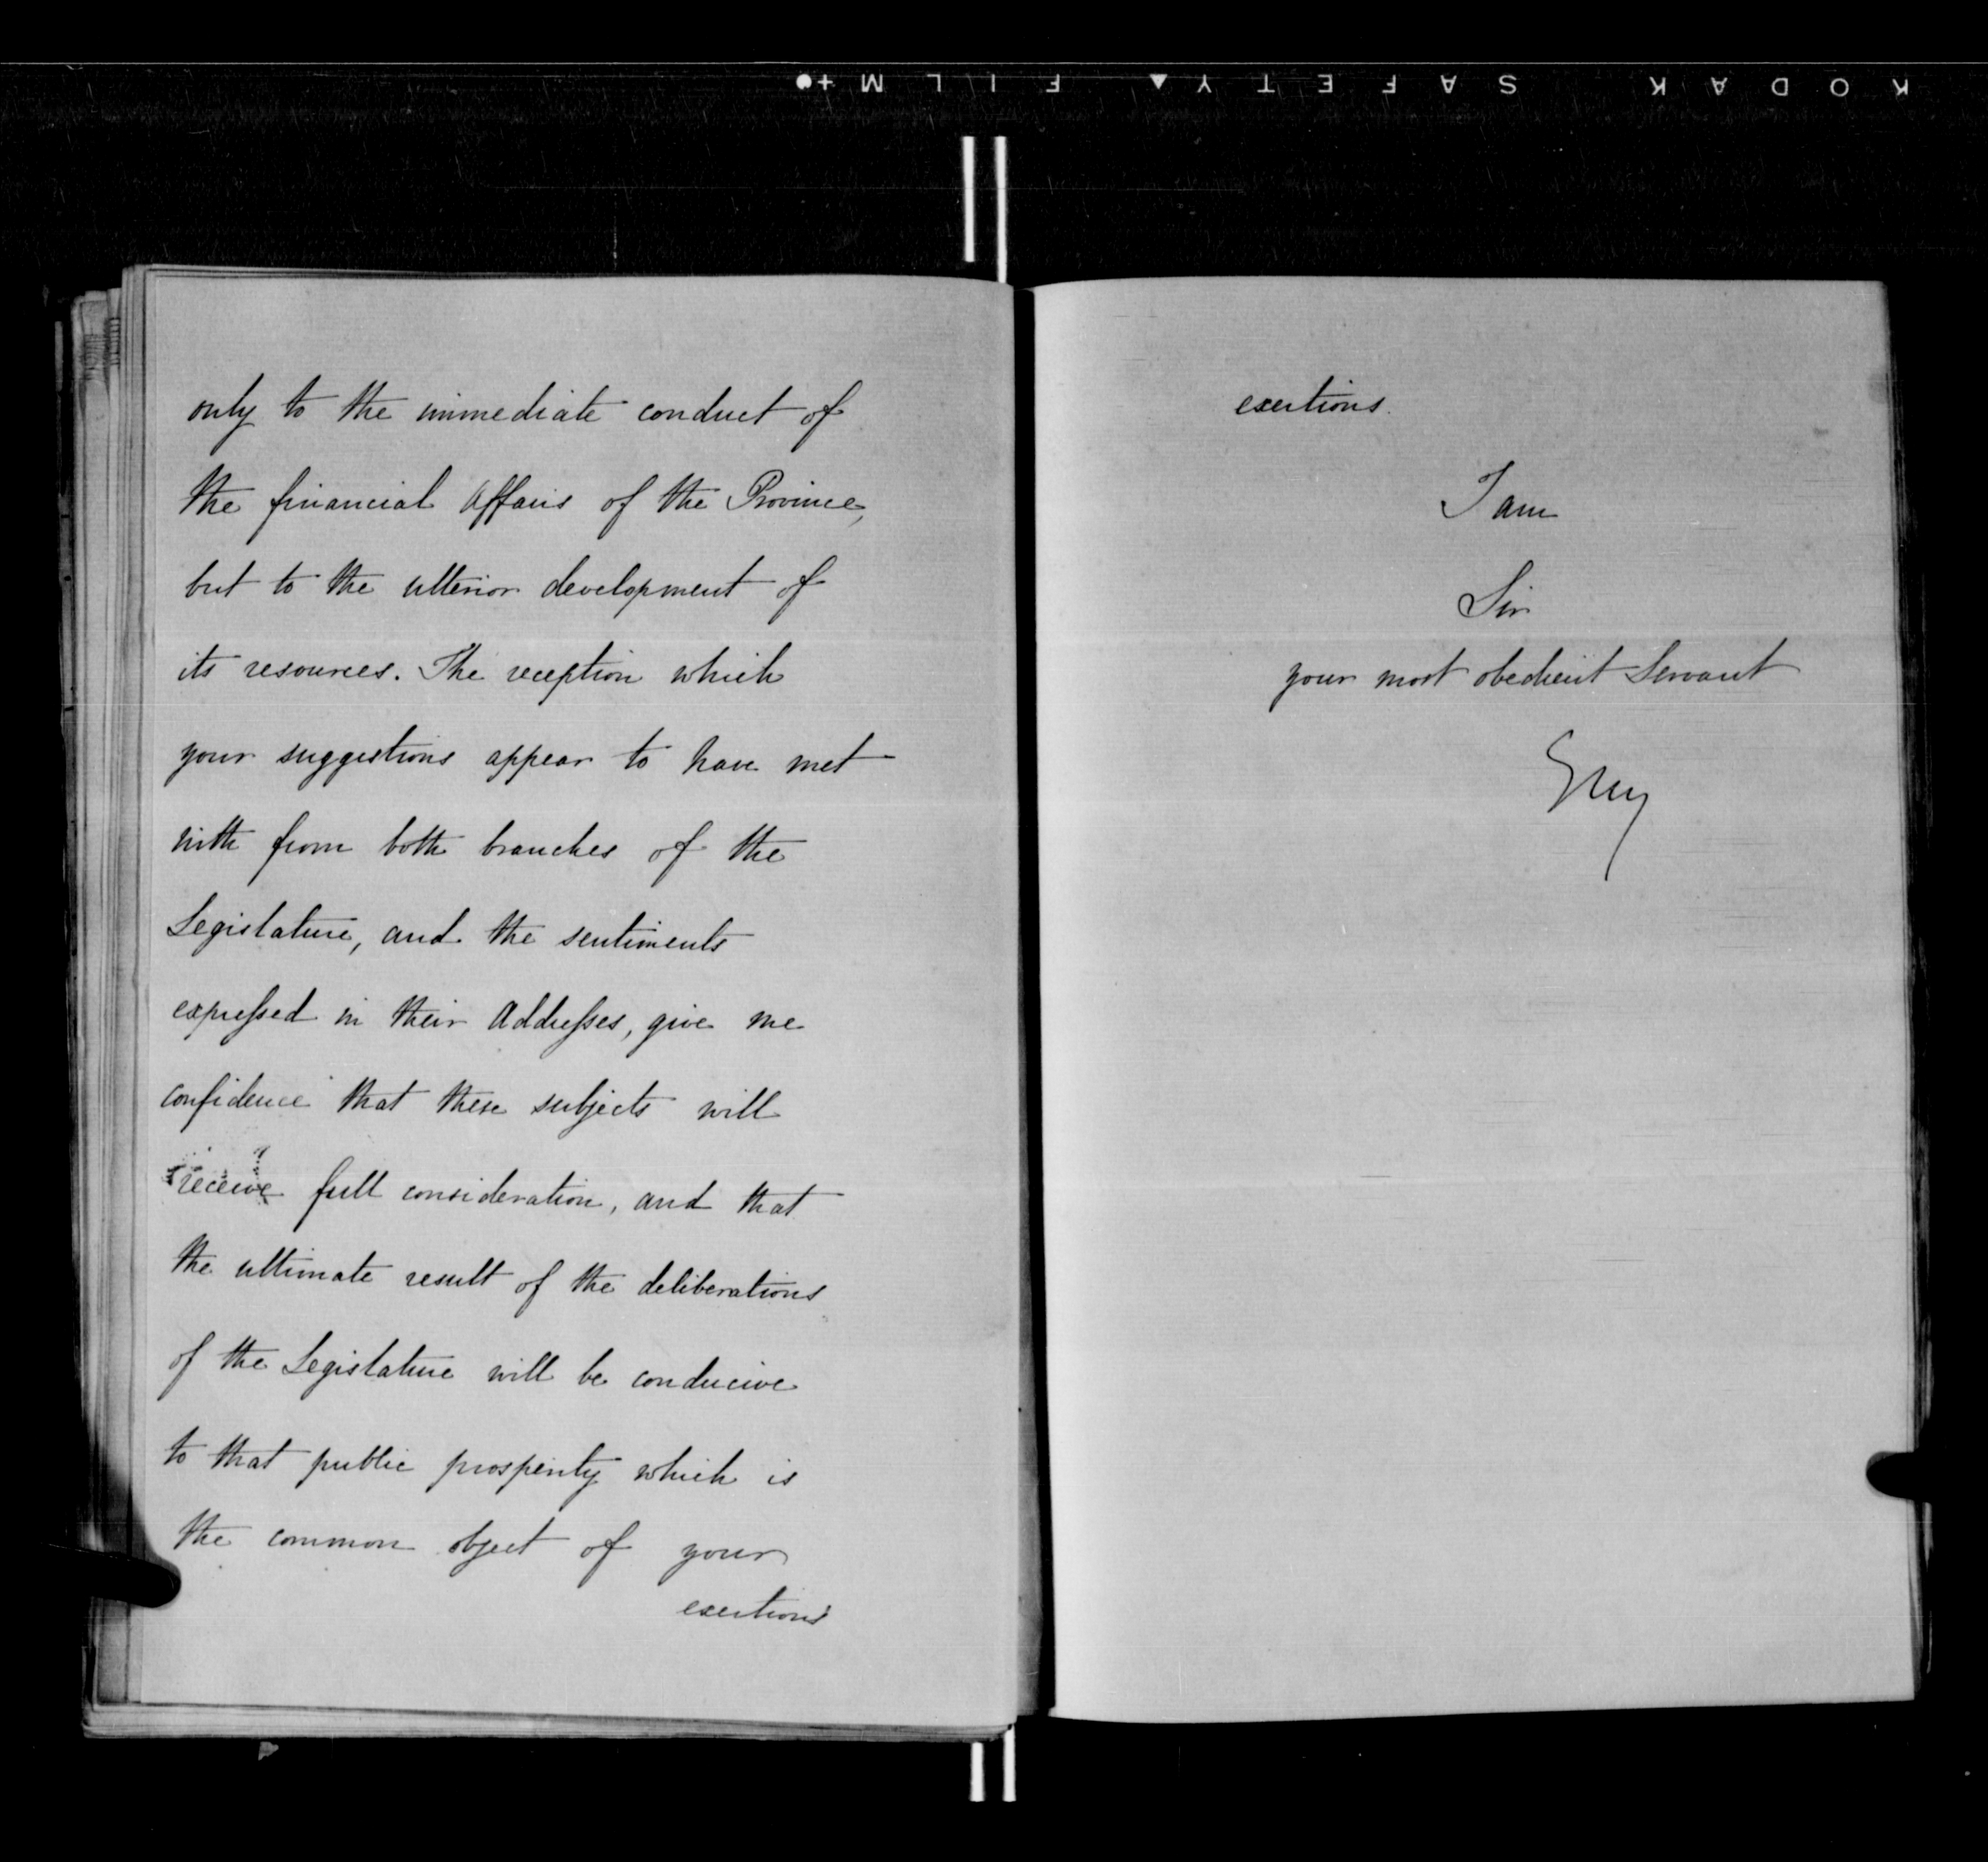 KODAK SAFETY FILM
only to the immediate conduct of
the financial Affairs of the Province,
but to the ulterior development of
its resources. The reception which
your suggestions appear to have met
with from both branches of the
Legislature, and the sentiments
expressed in their Addresses, give me
confidence that these subjects will
receive full consideration, and that
the ultimate result of the deliberations
of the Legislature will be conducive
to that public prosperity which is
the common object of your
exertions
exertions.
I am
Sir
your most obedient Servant
Grey